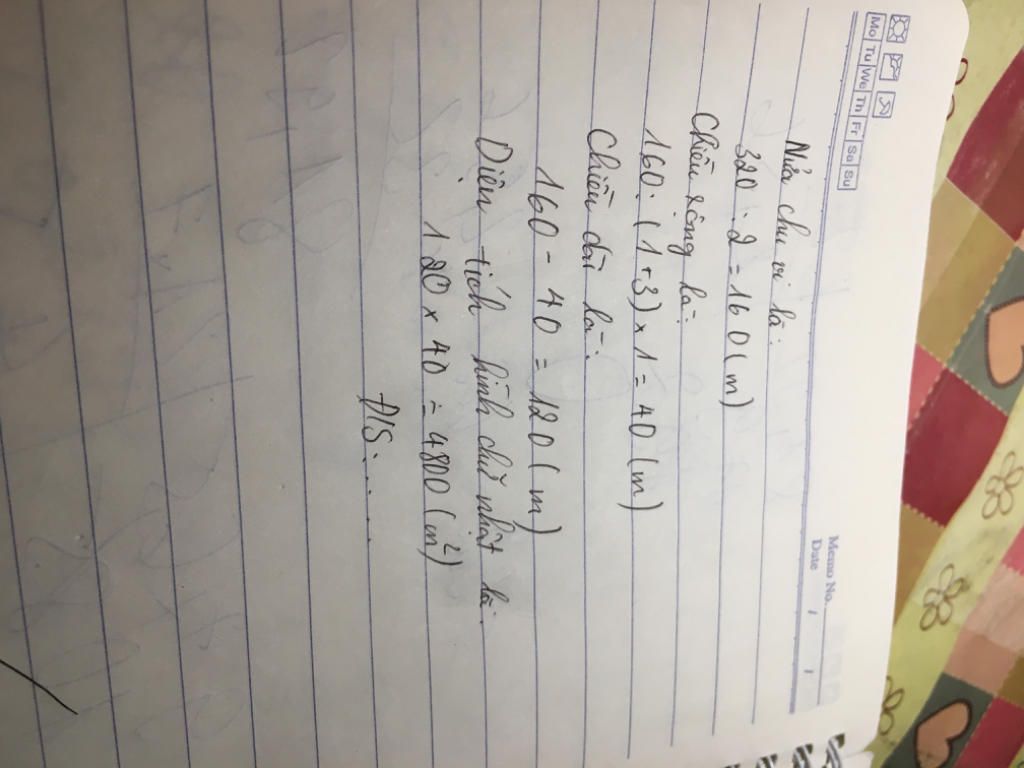 Mo Tu We Th Fr Sa Su
Memo No.
Date / /
Nửa chu vi là:
320 : 2 = 160 (m)
Chiều rộng là:
160 : (1+3) × 1 = 40 (m)
Chiều dài là:
160 - 40 = 120 (m)
Diện tích hình chữ nhật là:
120 × 40 = 4800 (m²)
Đ/S: .....